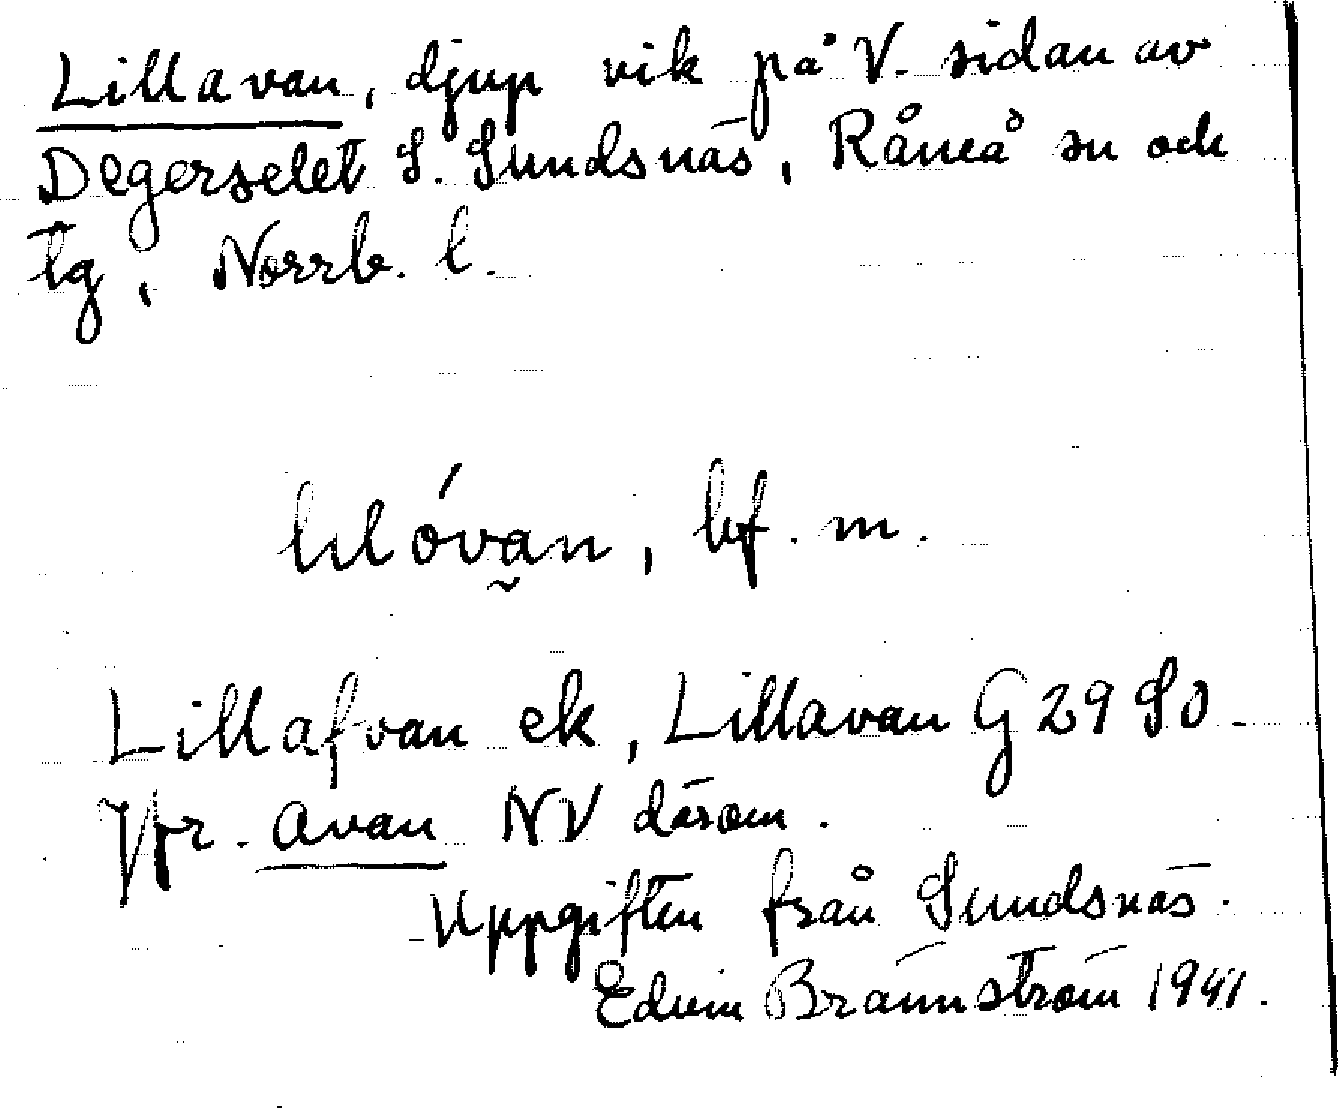 Lillavan, djup vik på V. sidan av
Degerselet S. Sundsnäs, Råneå sn och
tg, Norrb. l.
lılóva̰n, bf. m.
Lillafvan ek, Lillavan G 29 SO.
Jfr. Avan NV därom.
Uppgiften från Sundsnäs.
Edvin Brännström 1941.